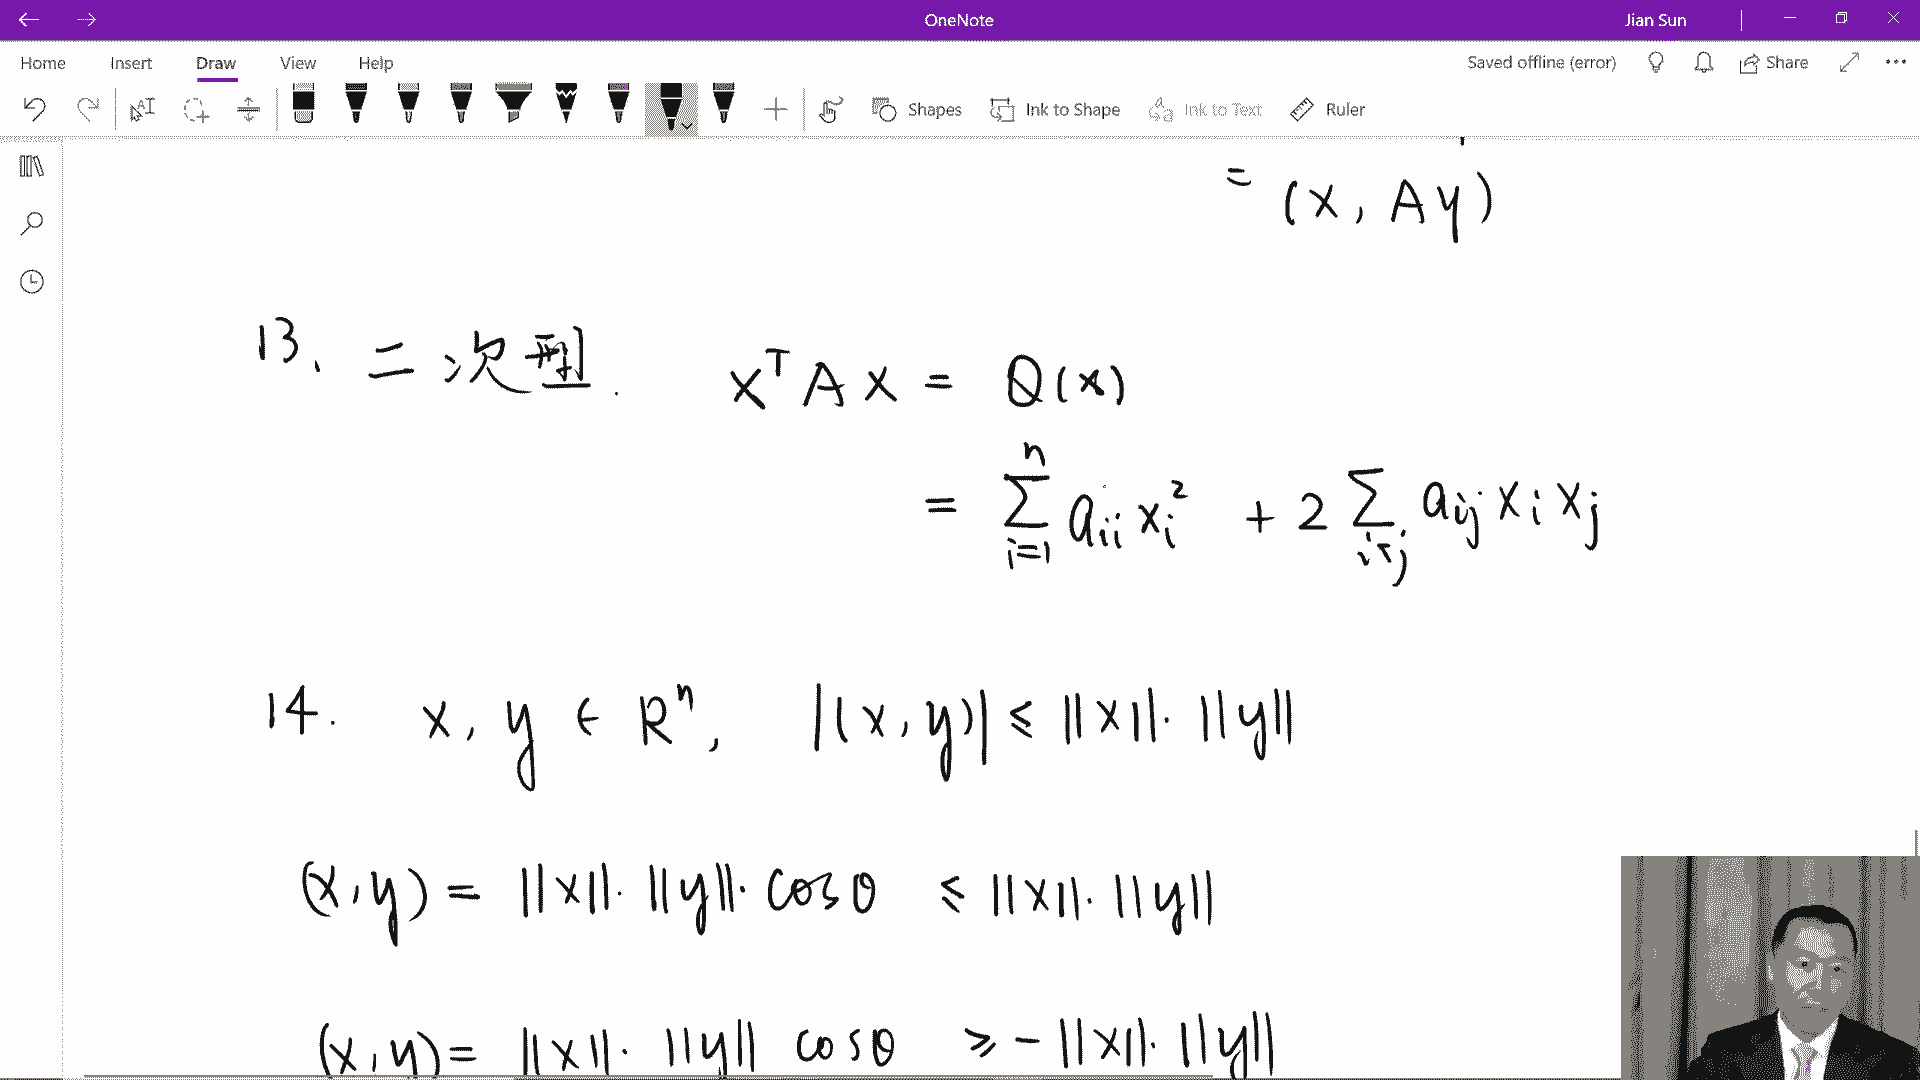 OneNote
Jian Sun
Home Insert Draw View Help
Saved offline (error) Share
Shapes Ink to Shape Ink to Text Ruler
= (x, Ay)
13. 二次型. xᵀAx = Q(x)
= ∑ⁿᵢ₌₁ aᵢᵢ xᵢ² + 2 ∑_{i<j} a_{ij} xᵢ xⱼ
14. x, y ∈ Rⁿ, |(x, y)| ≤ ||x||·||y||
(x, y) = ||x||·||y||·cosθ ≤ ||x||·||y||
(x, y) = ||x||·||y|| cosθ ≥ -||x||·||y||